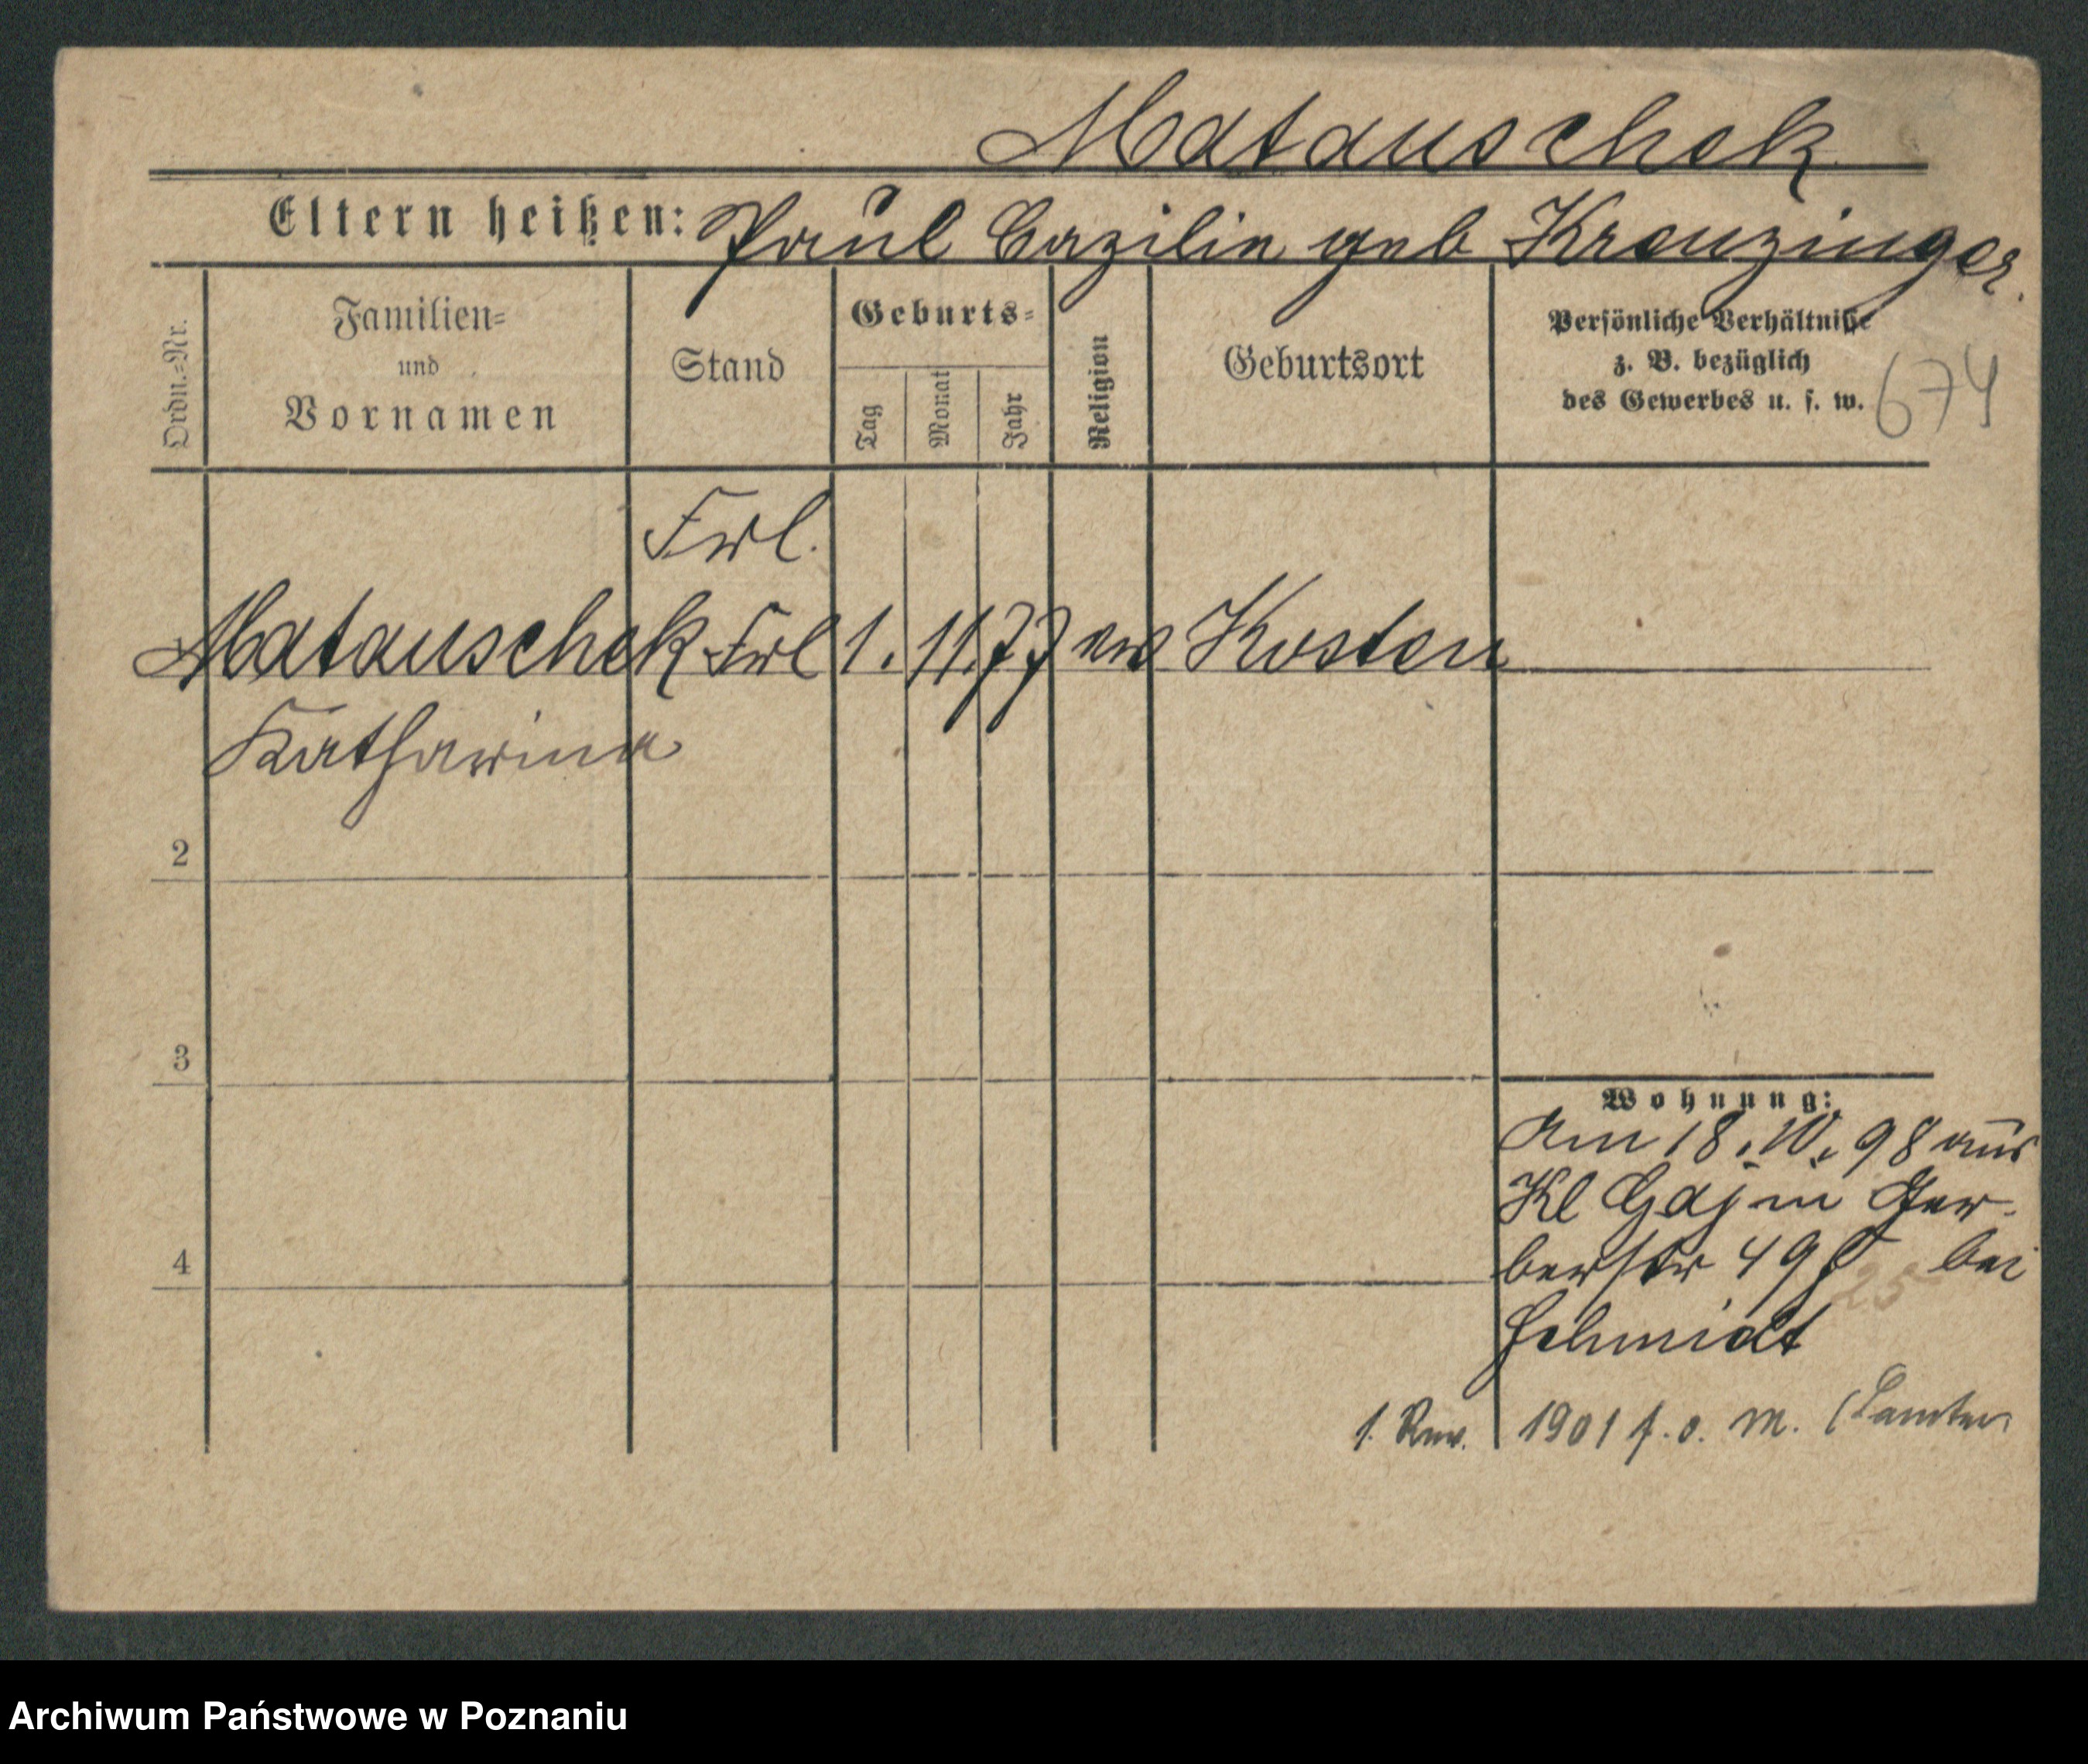 Matauschek
Eltern heißen: Paul Cazilie geb Kreuzinger.
Ordn.=Nr.
Familien=
und
Vornamen
Stand
Geburts=
Tag
Monat
Jahr
Religion
Geburtsort
Persönliche Verhältniße
z. B. bezüglich
des Gewerbes u. s. w.
674
Frl.
Matauschek Frl 1. 11. 77 ev Kosten
Katharina
2
3
4
Wohnung:
Am 18. 10. 98 aus
Kl Gaj in Ger-
berstr 49 bei
25
Schmidt
1. 1901 f. o. M. (Samter
Archiwum Państwowe w Poznaniu